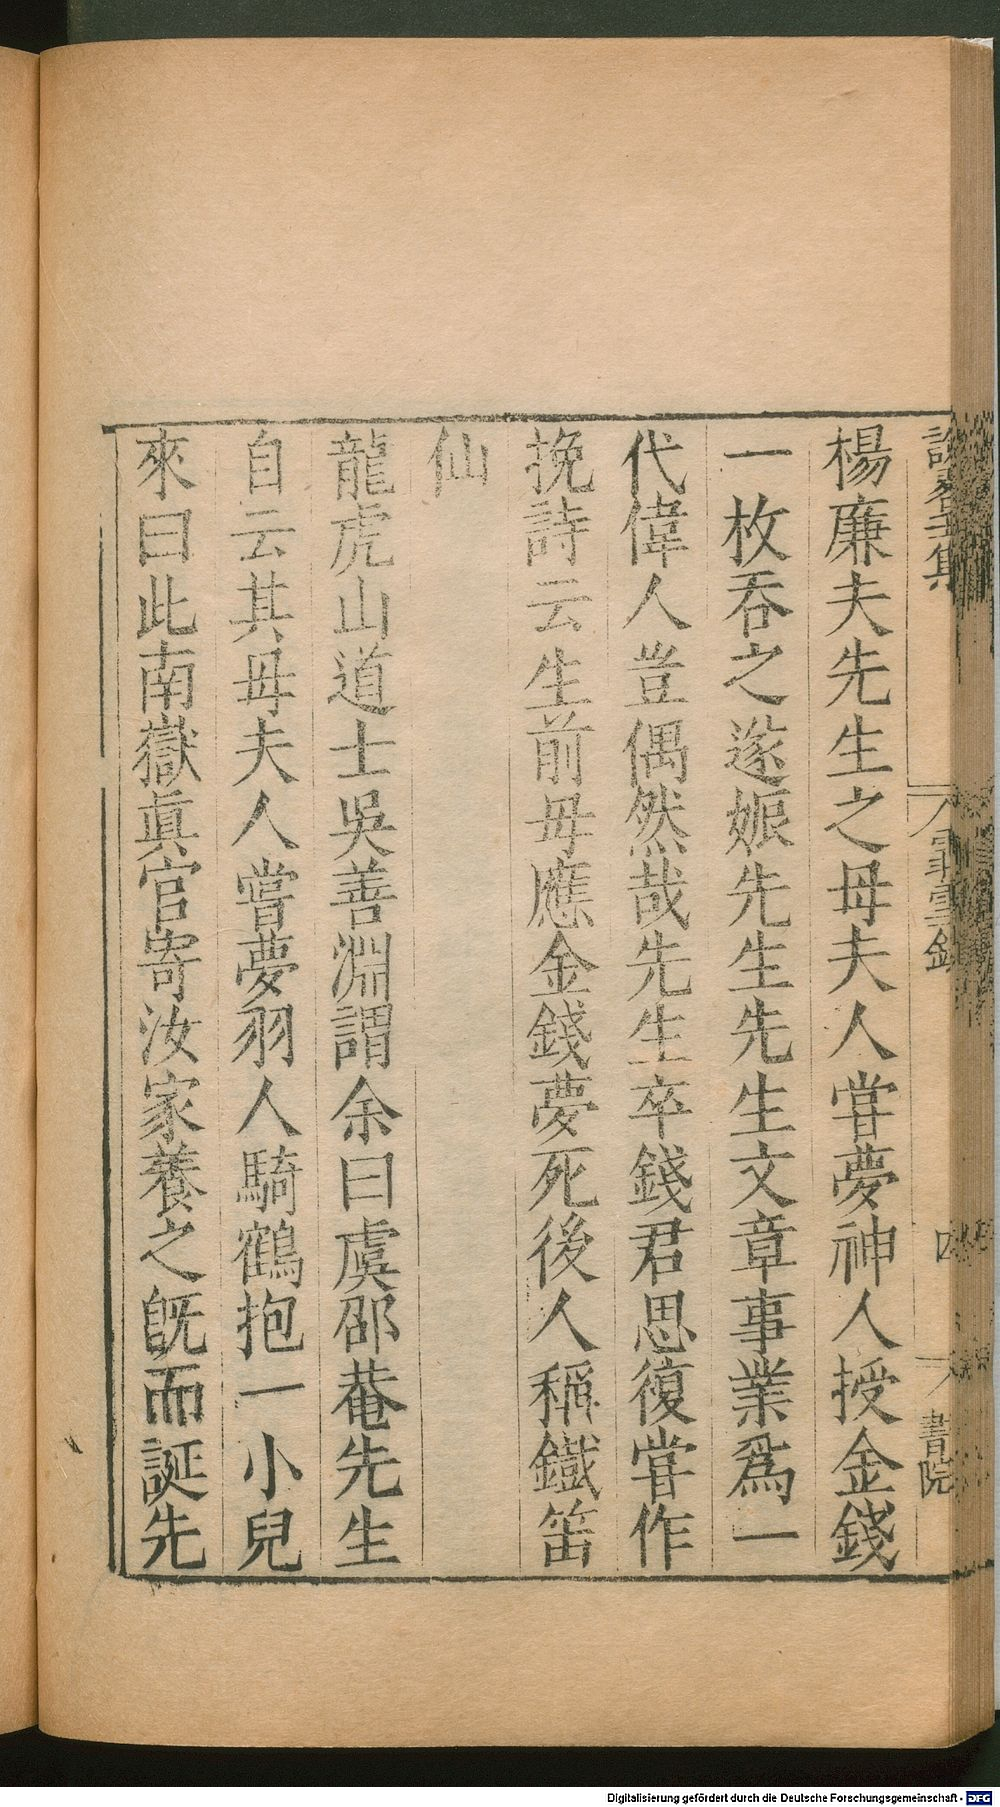 楊廉夫先生之母夫人甞夢神人授金錢
一枚吞之遂娠先生先生文章事業爲一
代偉人豈偶然哉先生卒錢君思復甞作
挽詩云生前母應金錢夢死後人稱鐵笛
仙
龍虎山道士吳善淵謂余曰虞邵菴先生
自云其母夫人嘗夢羽人騎鶴抱一小兒
來曰此南嶽眞官寄汝家養之旣而誕先
四
書院
Digitalisierung gefördert durch die Deutsche Forschungsgemeinschaft - DFG